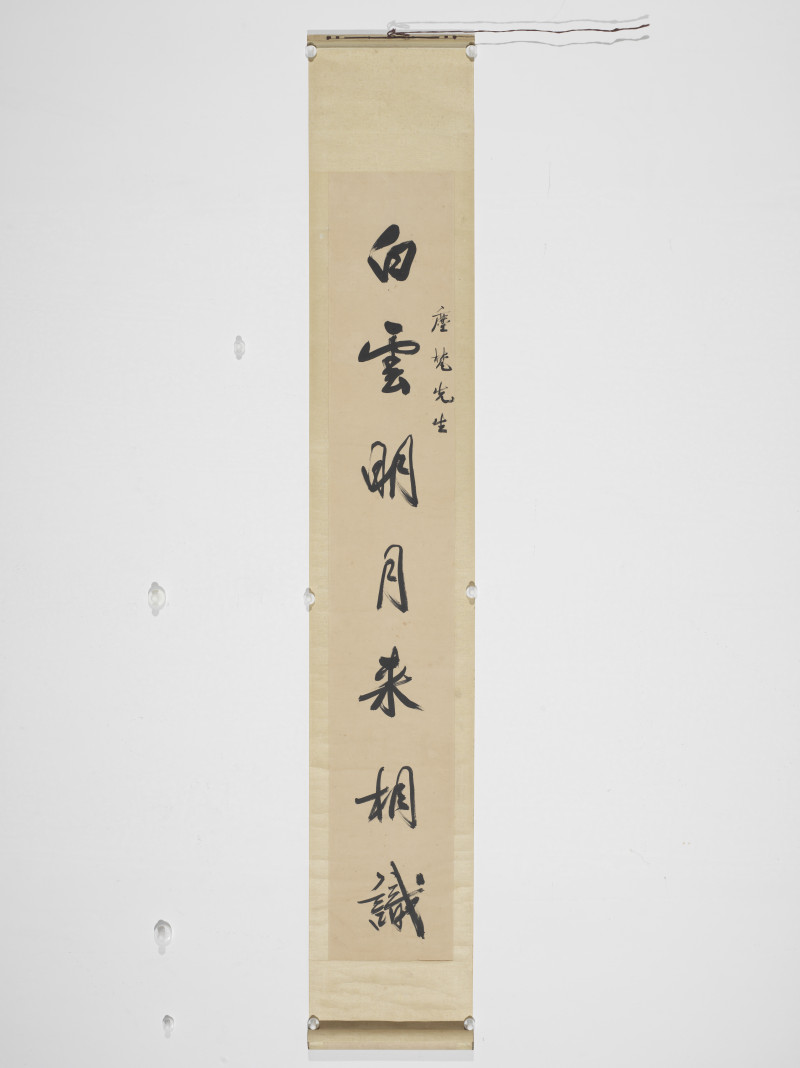 先生
白雲明月来相識